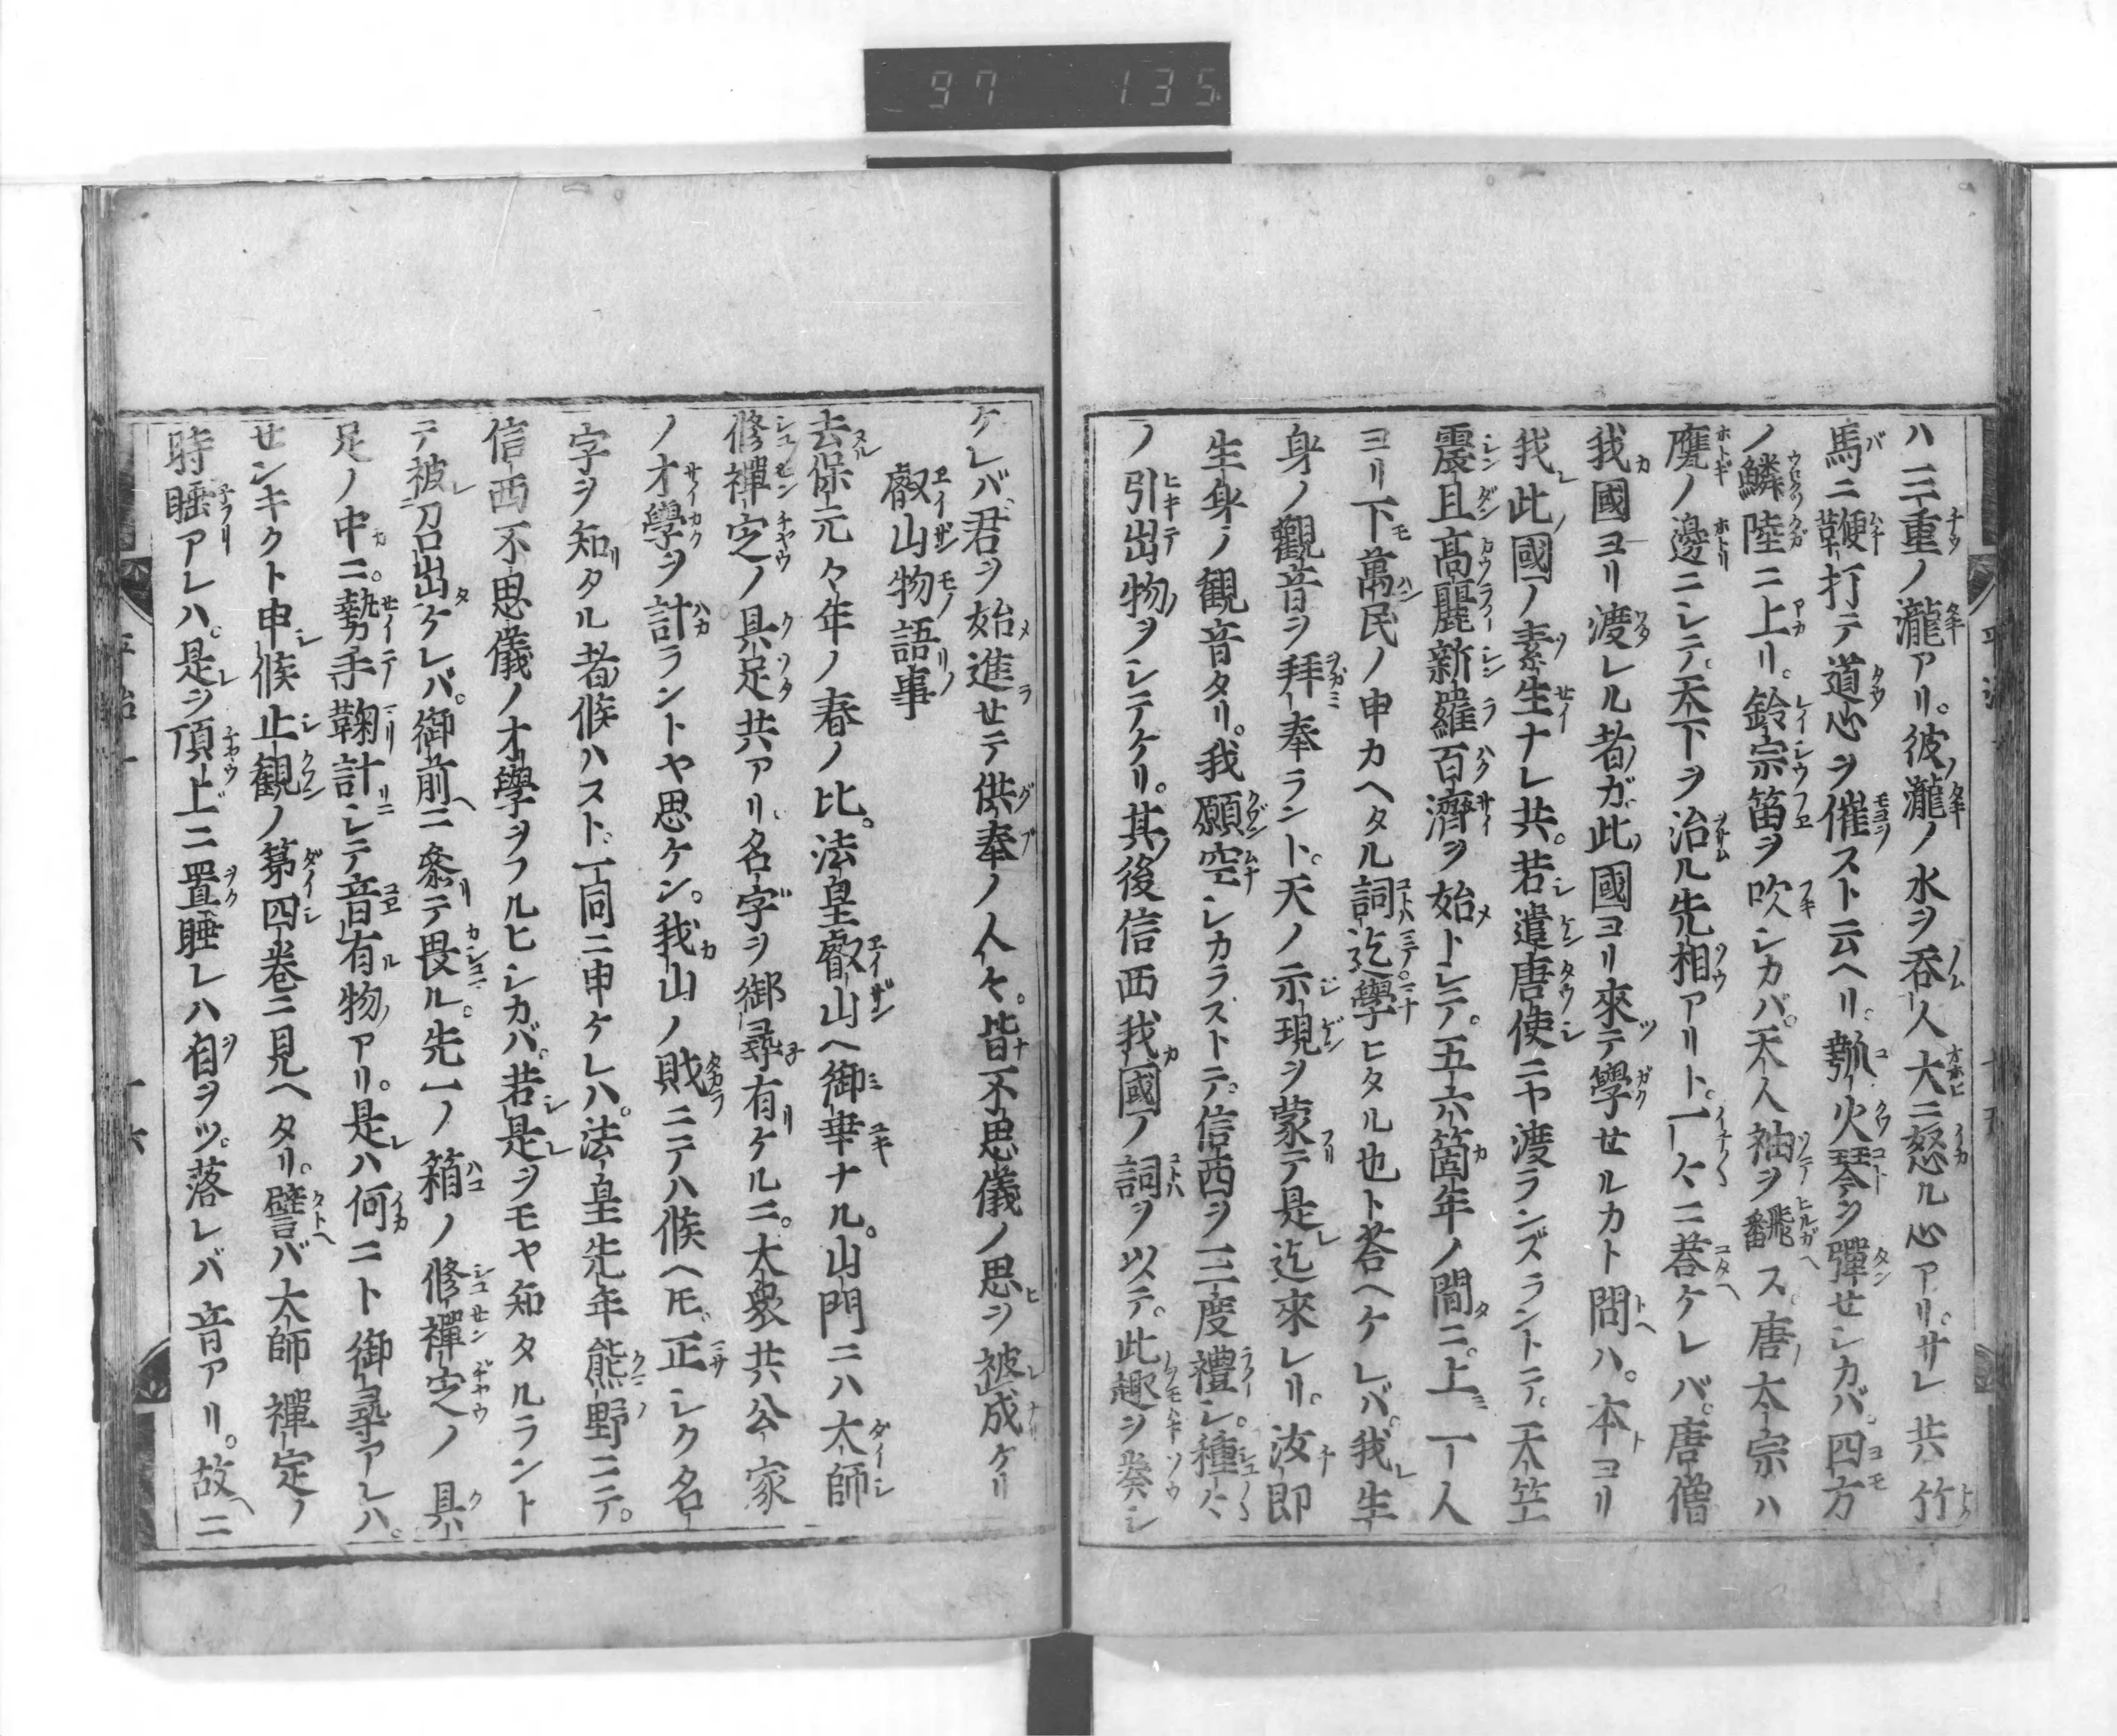 97 135
ハ三重ノ瀧アリ。彼瀧ノ水ヲ呑人大ニ怒ル心アリ。サレ共竹
馬ニ鞭打テ道心ヲ催スト云ヘリ。瓢火琴ヲ彈セシカバ。四方
ノ鱗陸ニ上リ。鈴宗笛ヲ吹シカバ。天人袖ヲ飜ス。唐太宗ハ
鷹ノ邊ニシテ。天下ヲ治ル先相アリト。一々ニ荅ケレバ。唐僧
我國ヨリ渡レル者ガ此國ヨリ來テ學セルカト問ハ。本ヨリ
我此國ノ素生ナレ共。若遣唐使ニヤ渡ランズラントテ。天竺
震旦高麗新羅百濟ヲ始トシテ。五六箇年ノ間ニ。上一人
ヨリ下萬民ノ申カヘタル詞迄學ヒタル也ト荅ヘケレバ。我生
身ノ觀音ヲ拜奉ラント。天ノ示現ヲ蒙テ是迄來レリ。汝即
生身ノ観音タリ。我願空シカラストテ。信西ヲ三度禮シ。種々
ノ引出物ヲシテケリ。其後信西我國ノ詞ヲ以テ。此趣ヲ奏シ
ケレバ君ヲ始進セテ供奉ノ人々。皆不思儀ノ思ヲ被成ケリ
叡山物語事
去保元々年ノ春ノ比。法皇叡山ヘ御幸ナル。山門ニハ大師
修禪定ノ具足共アリ。名字ヲ御尋有ケルニ。大衆共公家
ノ才學ヲ計ラントヤ思ケン。我山ノ財ニテハ候ヘ𪜈。正シク名
字ヲ知タル者候ハスト。一同ニ申ケレハ。法皇先年熊野ニテ。
信西不思儀ノ才學ヲフルヒシカバ。若是ヲモヤ知タルラント
テ被召出ケレバ。御前ニ參テ畏ル。先一ノ箱ノ修禪定ノ具
足ノ中ニ。勢手鞠計シテ音有物アリ。是ハ何ニト御尋アレハ。
サンキクト申候止観ノ第四巻ニ見ヘタリ。譬バ大師禪定ノ
時睡アレハ。是ヲ頂上ニ置睡レハ自ヲツ。落レバ音アリ。故ニ
平治一 十六